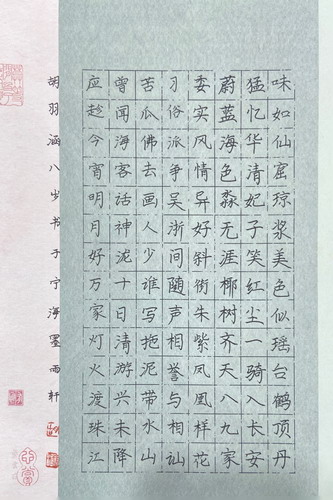 味如仙窟琼浆美色似瑶台鹤顶丹
猛忆华清妃子笑红尘一骑入长安
蔚蓝海色淼无涯椰树齐天八九家
委实风情异好斜街朱紫凤凰样花
习俗派争吴浙间随声相誉与相讪
苦瓜佛去画人少谁写拖泥带水山
曾闻海客话神泷十日清游兴未降
应趁今宵明月好万家灯火渡珠江
胡羽涵八岁书于宁海墨雨轩